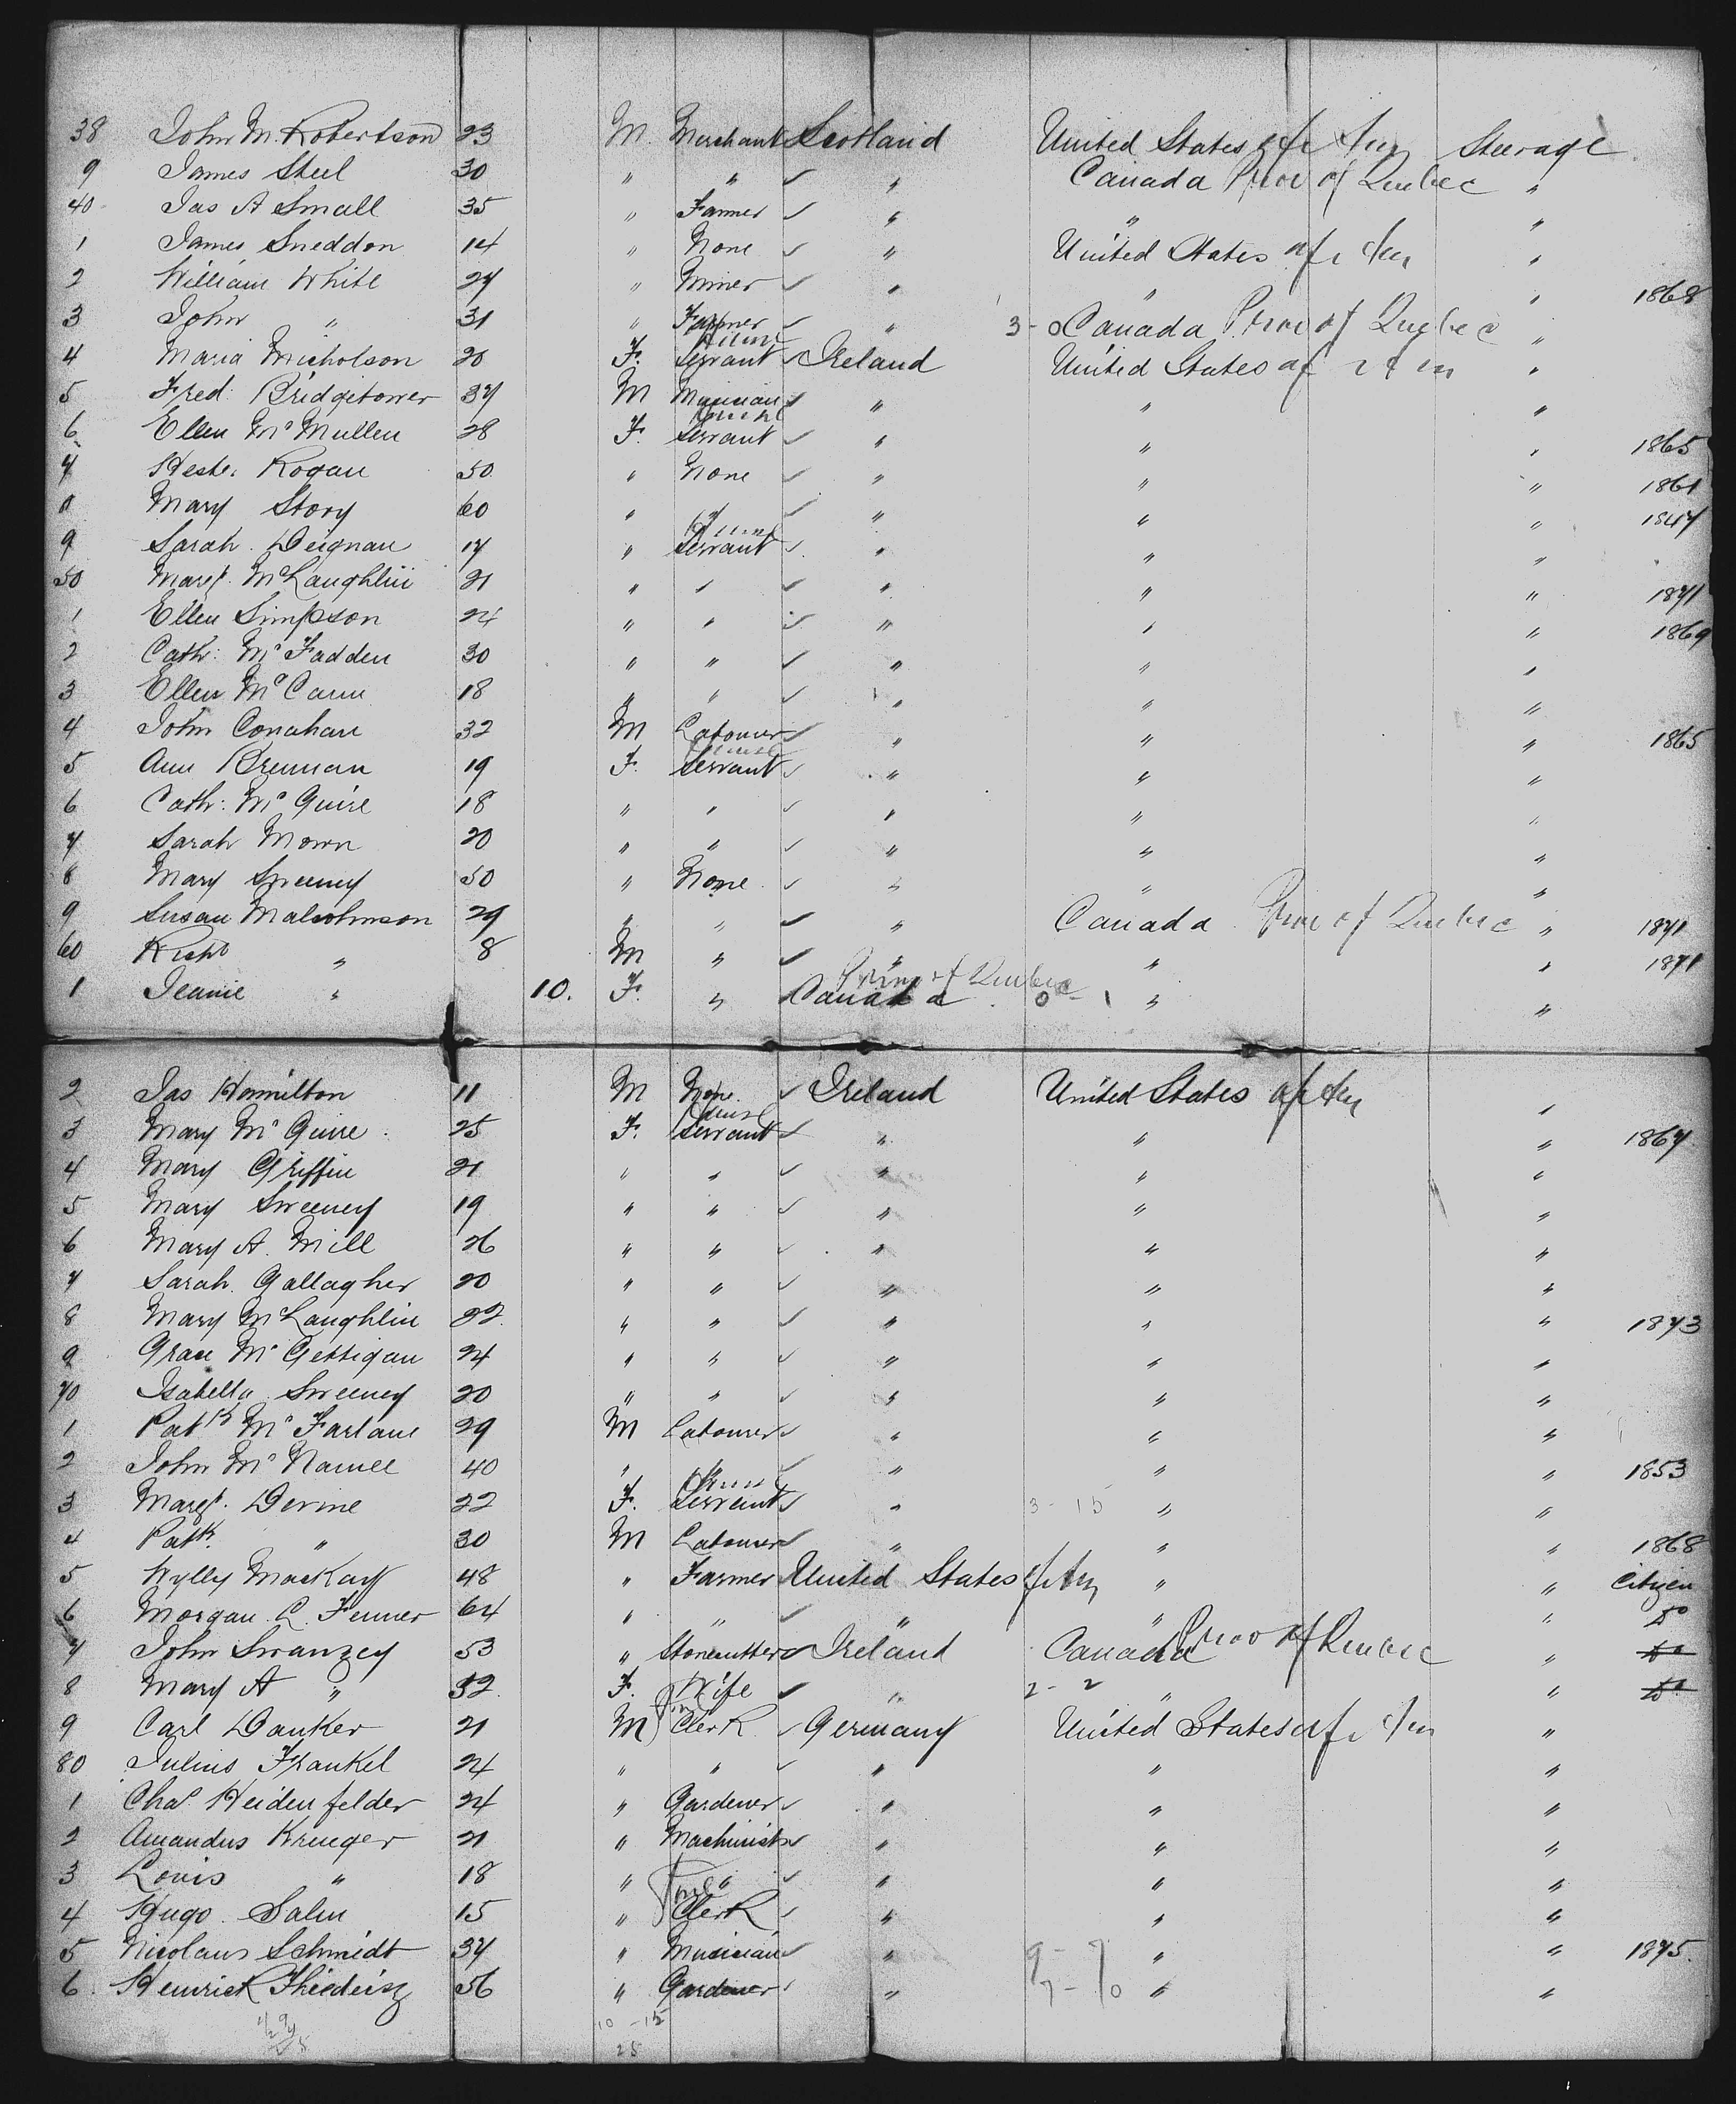 38 John M. Robertson 23 M. Merchant Scotland United States of Am Steerage
9 James Steel 30 " " ✓ " Canada Prov of Quebec "
40 Jas A Small 35 " Farmer ✓ " " "
1 James Sneddon 14 " None ✓ " United States of Am "
2 William White 27 " Miner ✓ " " " 1868
3 John " 31 " Farmer ✓ " 3-0 Canada Prov of Quebec "
4 Maria Nicholson 20 F. House Servant ✓ Ireland United States of Am "
5 Fred: Bridgetower 37 M Musician ✓ " " "
6 Ellen McMullen 28 F. House Servant ✓ " " " 1865
7 Hester Rogan 50 " None ✓ " " " 1861
8 Mary Story 60 " " ✓ " " " 1847
9 Sarah Deignan 17 " House Servant ✓ " " "
50 Margt. McLaughlin 21 " " ✓ " " " 1871
1 Ellen Simpson 24 " " ✓ " " " 1869
2 Cath: McFadden 30 " " ✓ " " "
3 Ellen McCann 18 " " ✓ " " "
4 John Conahan 32 M Labourer ✓ " " " 1865
5 Ann Brennan 19 F. House Servant ✓ " " "
6 Cath: McGuire 18 " " ✓ " " "
7 Sarah Mown 20 " " ✓ " " "
8 Mary Sweeney 50 " None ✓ " " "
9 Susan Malcolmson 29 " " ✓ " Canada Prov of Quebec " 1871
60 Richd " 8 M " ✓ " " " 1871
1 Jeanie " 10. F. " Canada Prov of Quebec 0-1 " "
2 Jas Hamilton 11 M None ✓ Ireland United States of Am "
3 Mary McGuire 25 F. House Servant ✓ " " " 1867
4 Mary Griffin 21 " " ✓ " " "
5 Mary Sweeney 19 " " ✓ " " "
6 Mary A. Mill 26 " " ✓ " " "
7 Sarah Gallagher 20 " " ✓ " " "
8 Mary McLaughlin 22 " " ✓ " " " 1873
9 Grace McGettigan 24 " " ✓ " " "
70 Isabella Sweeney 20 " " ✓ " " "
1 Patk McFarlane 29 M Labourer ✓ " " "
2 John McNamee 40 " " ✓ " " " 1853
3 Margt. Devine 22 F. House Servant ✓ " 3-15 " "
4 Patk. " 30 M Labourer ✓ " " " 1868
5 Wylly MacKay 48 " Farmer United States of Am " " Citizen
6 Morgan L. Fenner 64 " " ✓ " " " Do
7 John Swanzey 53 " Stonecutter ✓ Ireland Canada Prov of Quebec " Do
8 Mary A " 52 F. Wife ✓ " 2-2 " " Do
9 Carl Danker 21 M Clerk ✓ Germany United States of Am "
80 Julius Frankel 24 " " ✓ " " "
1 Chas Heidenfelder 24 " Gardener ✓ " " "
2 Amandus Krueger 21 " Machinist ✓ " " "
3 Louis " 18 " " ✓ " " "
4 Hugo Salm 15 " Clerk ✓ " " "
5 Nicolaus Schmidt 37 " Musician ✓ " 9-9 " " 1875.
6. Heinrich Thiedeing 56 " Gardener ✓ " 7-10 " "
10-15
25